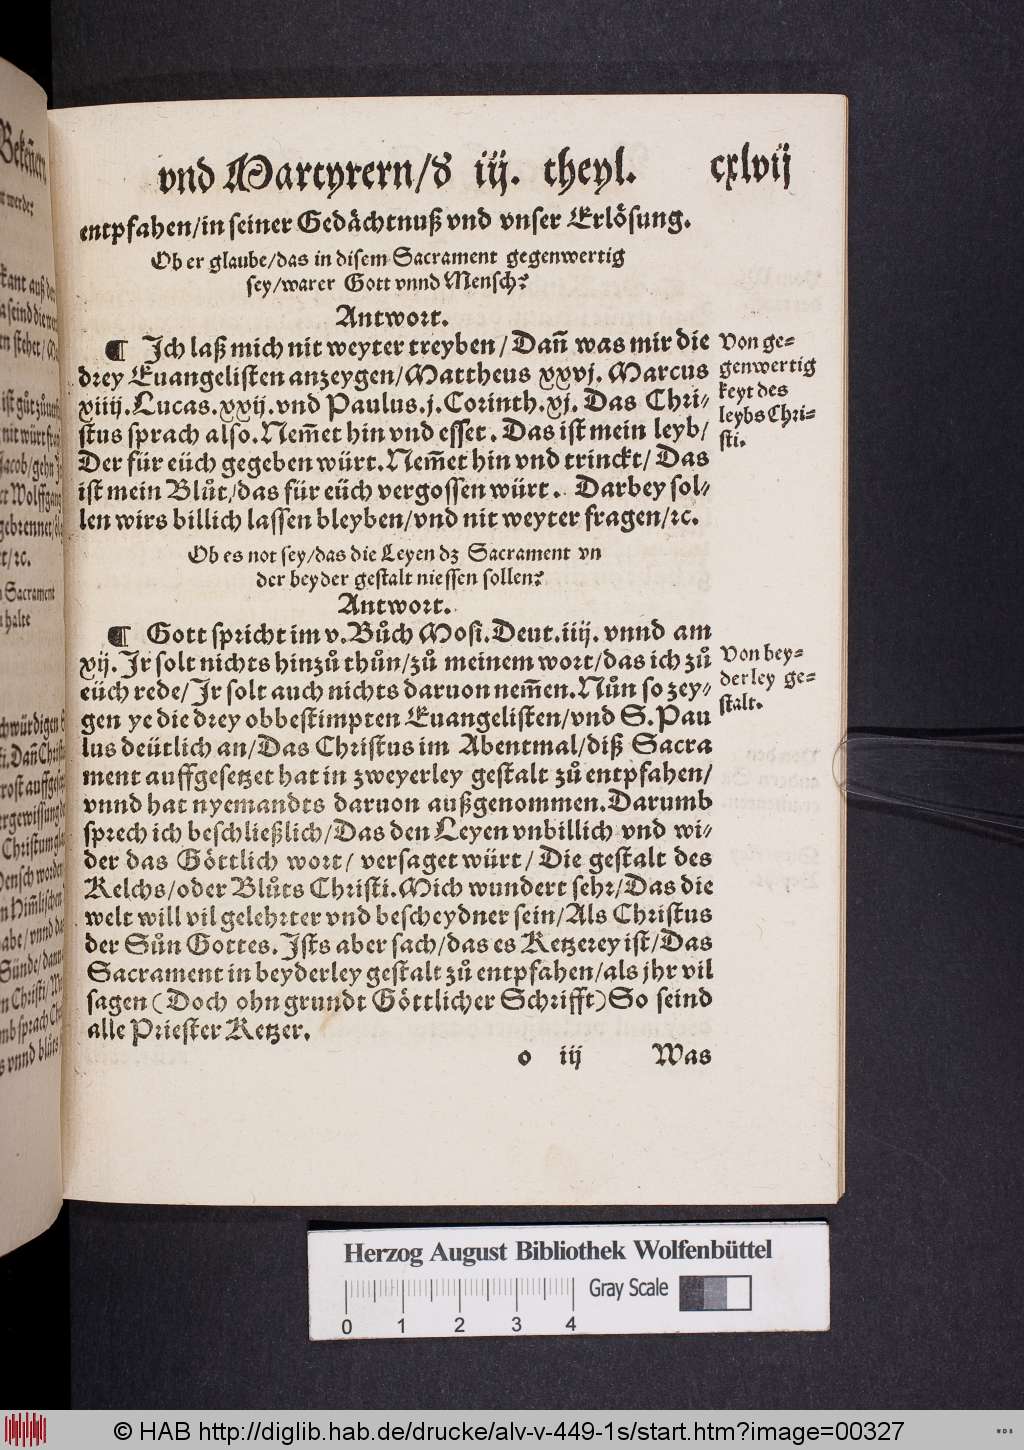 vnd Martyrern/ð iij. theyl. cxlvij
entpfahen/in seiner Gedächtnuß vnd vnser Erlösung.
Ob er glaube/das in disem Sacrament gegenwertig
sey/warer Gott vnnd Mensch?
Antwort.
¶ Ich laß mich nit weyter treyben/Dañ was mir die
drey Euangelisten anzeygen/Mattheus xxvj. Marcus
xiiij. Lucas. xxij. vnd Paulus. j. Corinth. xj. Das Chri-
stus sprach also. Nem̄et hin vnd esset. Das ist mein leyb/
Der für eüch gegeben würt. Nem̄et hin vnd trinckt/Das
ist mein Blůt/das für eüch vergossen würt. Darbey sol-
len wirs billich lassen bleyben/vnd nit weyter fragen/ꝛc.
Von ge-
genwertig
keyt des
leybs Chri-
sti.
Ob es not sey/das die Leyen dz Sacrament vn
der beyder gestalt niessen sollen?
Antwort.
¶ Gott spricht im v. Bůch Mosi. Deut. iiij. vnnd am
xij. Ir solt nichts hinzů thůn/zů meinem wort/das ich zů
eüch rede/Ir solt auch nichts daruon nem̄en. Nůn so zey-
gen ye die drey obbestimpten Euangelisten/vnd S. Pau
lus deütlich an/Das Christus im Abentmal/diß Sacra
ment auffgesetzet hat in zweyerley gestalt zů entpfahen/
vnnd hat nyemandts daruon außgenommen. Darumb
sprech ich beschließlich/Das den Leyen vnbillich vnd wi-
der das Göttlich wort/versaget würt/Die gestalt des
Kelchs/oder Blůts Christi. Mich wundert sehr/Das die
welt will vil gelehrter vnd bescheydner sein/Als Christus
der Sůn Gottes. Ists aber sach/das es Ketzerey ist/Das
Sacrament in beyderley gestalt zů entpfahen/als jhr vil
sagen (Doch ohn grundt Göttlicher Schrifft) So seind
alle Priester Ketzer.
Von bey-
derley ge-
stalt.
o iij Was
Herzog August Bibliothek Wolfenbüttel
Gray Scale
0 1 2 3 4
© HAB http://diglib.hab.de/drucke/alv-v-449-1s/start.htm?image=00327